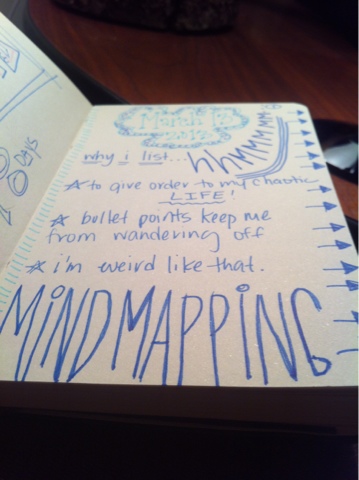 March 13
2012
why i list... hhMMMMM
to give order to my chaotic
LIFE!
bullet points keep me
from wandering off
i'm weird like that.
MiNDMAPPiNG